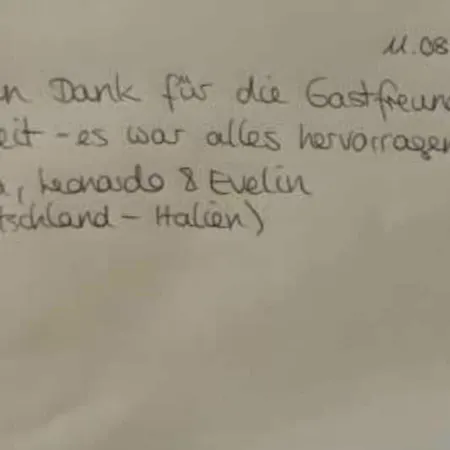 11.08
en Dank für die Gastfreun
eit - es war alles hervorragen
, Leonardo & Evelin
tschland - Italien)